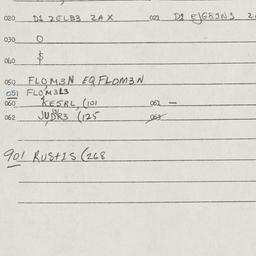 020 DS 2ELB3 2AX 021 DI EJGRJNS 2
030 0
040 $
050 FLOM3N EQ FLOM3N
051 FLOM3L3
060 KESRL (101 061 —
062 JUDR3 (125 063
901 RUSTIS (268